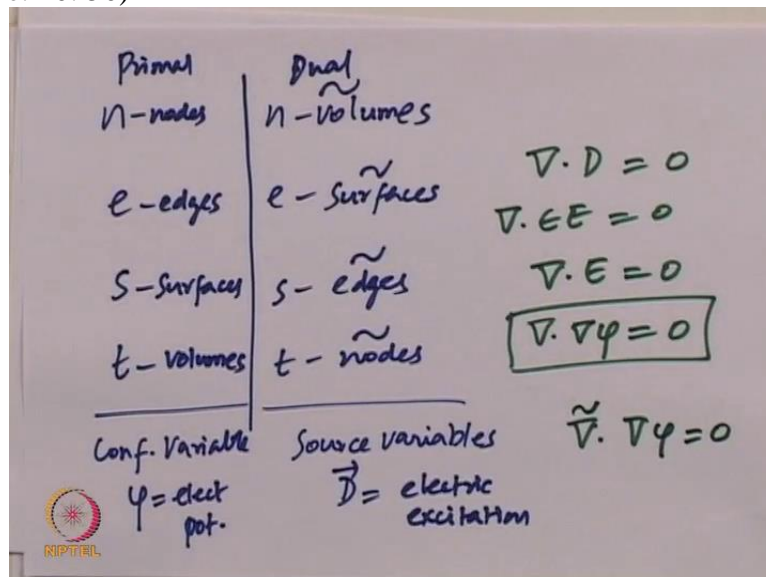 Primal Dual
n-nodes n-volumes
∇·D = 0
e-edges e-surfaces
∇·ϵE = 0
s-surfaces s-edges
∇·E = 0
∇·∇φ = 0
t-volumes t-nodes
Conf. Variable Source variables
∇̃·∇φ = 0
φ = elect D⃗ = electric
pot. excitation
NPTEL